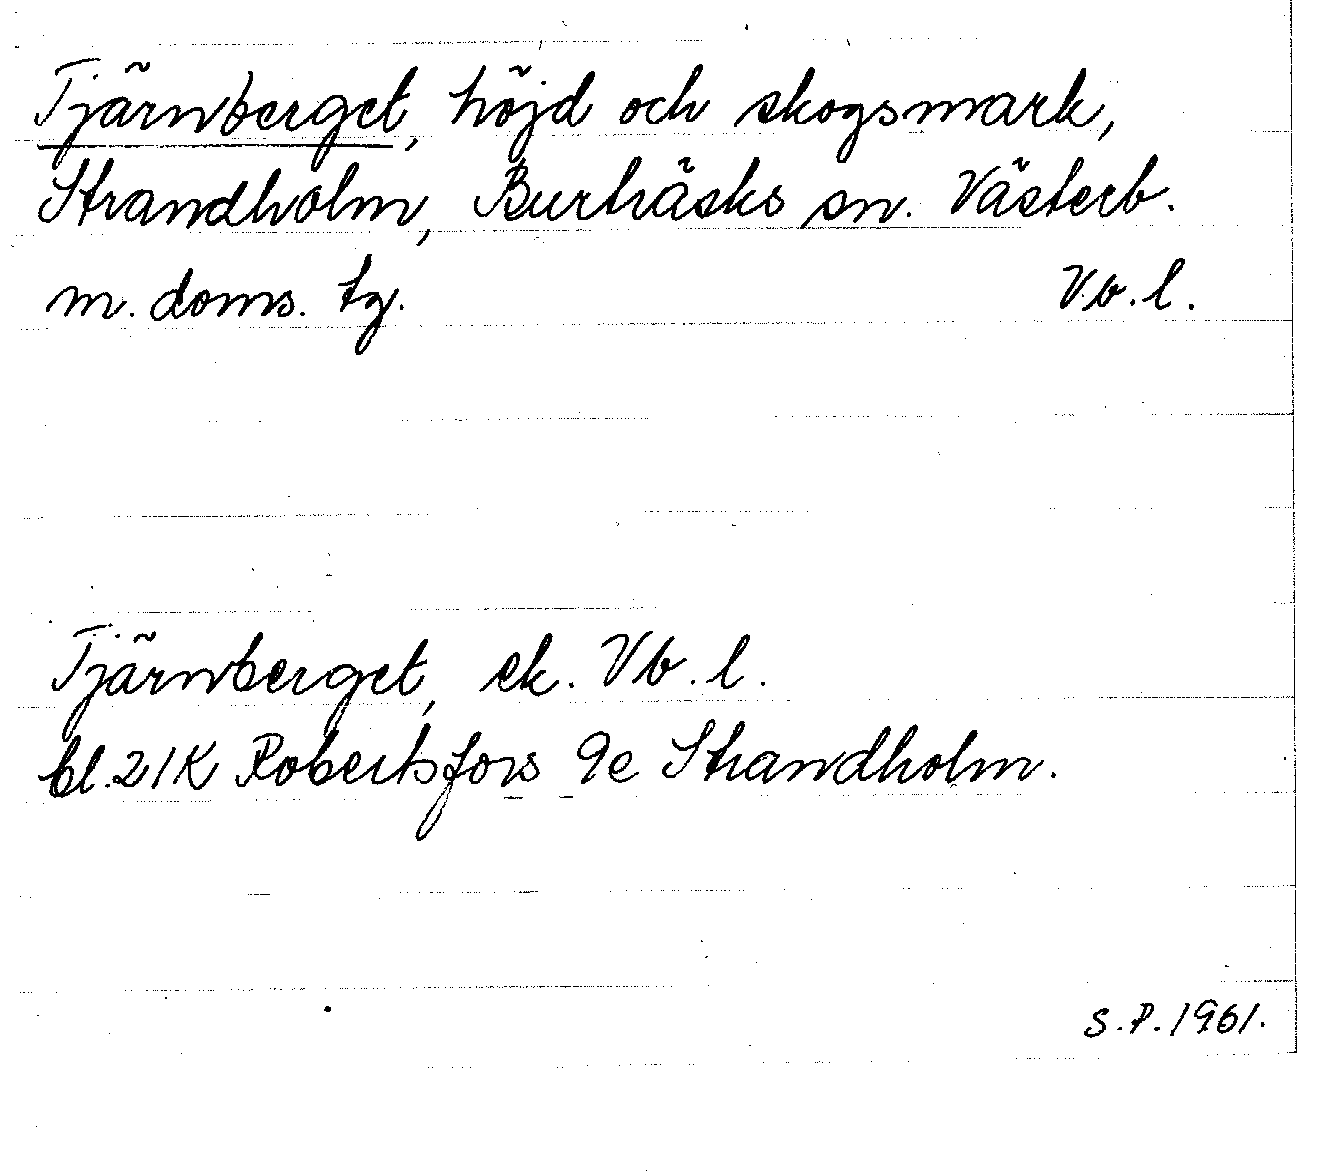 Tjärnberget, höjd och skogsmark,
Strandholm, Burträsks sn. Västerb.
m. doms. tg. Vb. l.
Tjärnberget, ek. Vb. l.
bl. 21K Robertsfors 9e Strandholm.
S.P. 1961.